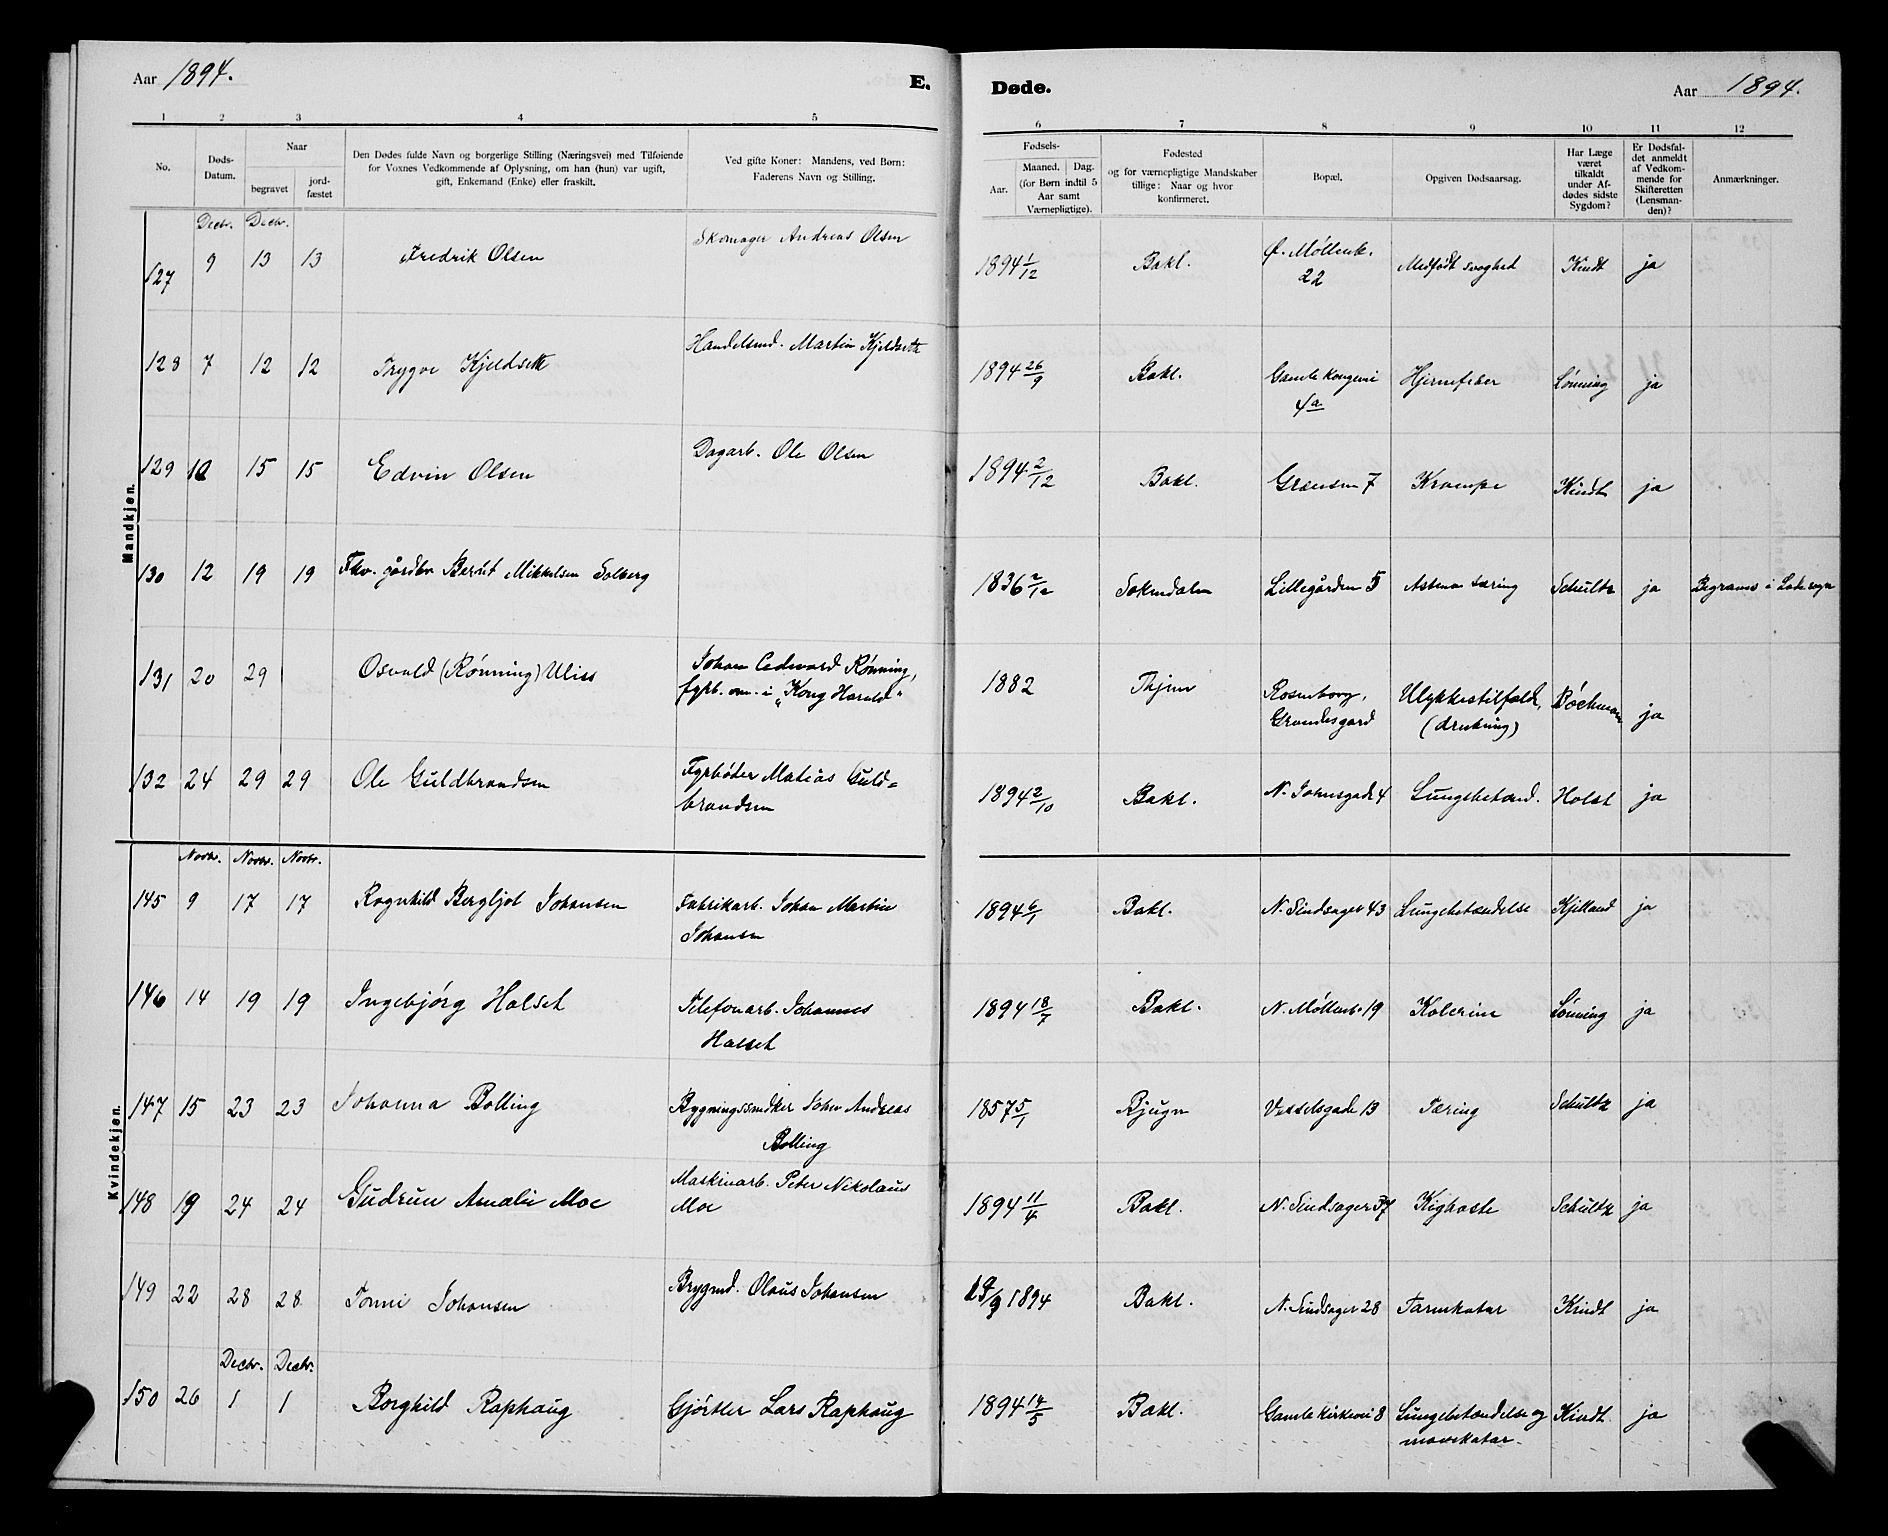 Aar 1894.
E.
Døde.
Aar 1894.
1 2 3 4 5 6 7 8 9 10 11 12
No.
Døds-Datum.
Naar
begravet
jord-fæstet
Den Dødes fulde Navn og borgerlige Stilling (Næringsvei) med Tilføiende
for Voxnes Vedkommende af Oplysning, om han (hun) var ugift,
gift, Enkemand (Enke) eller fraskilt.
Ved gifte Koner: Mandens, ved Børn:
Faderens Navn og Stilling.
Fødsels-
Aar.
Maaned. Dag.
(for Børn indtil 5
Aar samt
Værnepligtige).
Fødested
og for værnepligtige Mandskaber
tillige: Naar og hvor
konfirmeret.
Bopæl.
Opgiven Dødsaarsag.
Har Læge
været
tilkaldt
under Af-
dødes sidste
Sygdom?
Er Dødsfal-
det anmeldt
af Vedkom-
mende for
Skifteretten
(Lensman-
den)?
Anmærkninger.
Mandkjøn.
Decbr. Decbr.
127 9 13 13 Fredrik Olsen Skomager Andreas Olsen 1894 1/12 Bakl. Ø. Møllenb. 22 Medfødt svaghed Kindt ja
128 7 12 12 Trygve Kjeldseth Handelsmd. Martin Kjeldseth 1894 26/9 Bakl. Gamle Kongevei 4a Hjernefeber Lønning ja
129 10 15 15 Edvin Olsen Dagarb. Ole Olsen 1894 2/12 Bakl. Grænsen 7 Krampe Kindt ja
130 12 19 19 Fhv. gårdbr Berut Mikkelsen Solberg 1836 2/12 Soknedalen Lillegården 5 Astma tæring Schultz ja Begraves i Lade sogn
131 20 29 Osvald (Rønning) Uliss Johan Edward Rønning, fyrb. om. i „Kong Harald" 1882 Thjem Rosenborg, Grandesgard Ulykkestilfæld, (drukning) Bøckman ja
132 24 29 29 Ole Guldbrandsen Fyrbøder Matias Guld=brandsen 1894 2/10 Bakl. N. Johnsgade 4 Lungebetænd. Holst ja
Kvindekjøn.
Novbr. Novbr. Novbr.
145 9 17 17 Ragnhild Bergljot Johansen Fabrikarb. Johan Martin Johansen 1894 6/1 Bakl. N. Sindsager 43 Lungebetændelse Kjelland ja
146 14 19 19 Ingebjørg Halset Telefonarb. Johannes Halset 1894 18/7 Bakl. N. Møllenb. 19 Kolerine Lønning ja
147 15 23 23 Johanna Bolling Bygningssnedker John Andreas Bolling 1857 5/1 Bjugn Vesselsgade 13 Tæring Schultz ja
148 19 24 24 Gudrun Amalie Moe Maskinarb. Peter Nikolaus Moe 1894 11/4 Bakl. N. Sindsager 37 Kighoste Schultz ja
149 22 28 28 Tonni Johansen Brygmd. Olaus Johansen 1894 Bakl. N. Sindsager 28 Tarmkatar Kindt ja
Decbr. Decbr.
150 26 1 1 Borghild Raphaug Gjørtler Lars Raphaug 1894 14/5 Bakl. Gamle Kirkevei 8 Lungebetændelse og mavekatar. Kindt ja